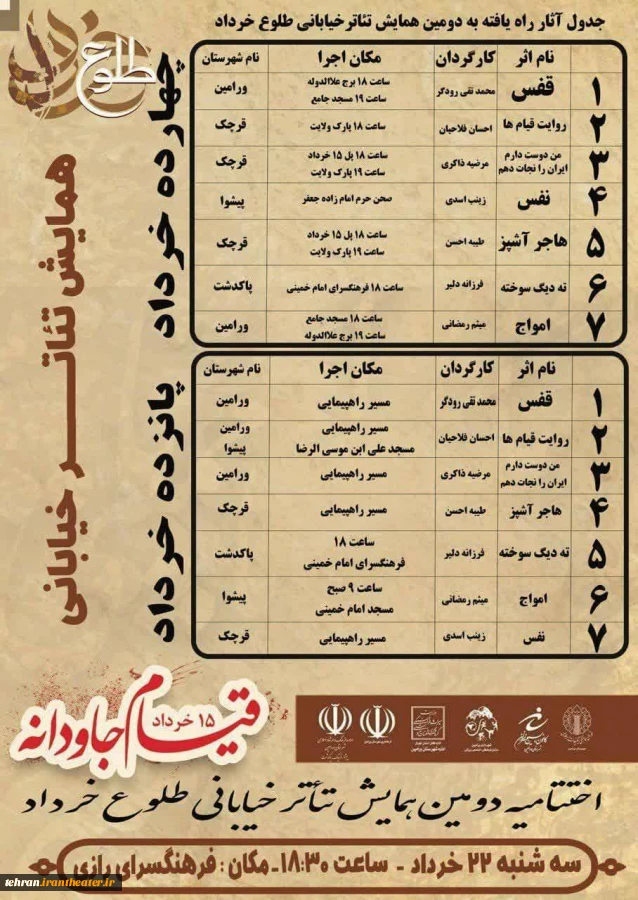 جدول آثار راه یافته به دومین همایش تئاترخیابانی طلوع خرداد
طلوع
خرداد
همایش تئاتر خیابانی
چهارده خرداد
نام اثر کارگردان مکان اجرا نام شهرستان
۱ قفس محمد تقی رودگر ساعت ۱۸ برج علاالدوله ورامین
ساعت ۱۹ مسجد جامع
۲ روایت قیام ها احسان فلاحیان ساعت ۱۸ پارک ولایت قرچک
۳ من دوست دارم مرضیه ذاکری ساعت ۱۸ پل ۱۵ خرداد قرچک
ایران را نجات دهم ساعت ۱۹ پارک ولایت
۴ نفس زینب اسدی صحن حرم امام زاده جعفر پیشوا
۵ هاجر آشپز طیبه احسن ساعت ۱۸ پل ۱۵ خرداد قرچک
ساعت ۱۹ پارک ولایت
۶ ته دیگ سوخته فرزانه دلیر ساعت ۱۸ فرهنگسرای امام خمینی پاکدشت
۷ امواج میثم رمضانی ساعت ۱۸ مسجد جامع ورامین
ساعت ۱۹ برج علاالدوله
پانزده خرداد
نام اثر کارگردان مکان اجرا نام شهرستان
۱ قفس محمد تقی رودگر مسیر راهپیمایی ورامین
۲ روایت قیام ها احسان فلاحیان مسیر راهپیمایی ورامین
مسجد علی ابن موسی الرضا پیشوا
۳ من دوست دارم مرضیه ذاکری مسیر راهپیمایی ورامین
ایران را نجات دهم
۴ هاجر آشپز طیبه احسن مسیر راهپیمایی قرچک
۵ ته دیگ سوخته فرزانه دلیر ساعت ۱۸ پاکدشت
فرهنگسرای امام خمینی
۶ امواج میثم رمضانی ساعت ۹ صبح پیشوا
مسجد امام خمینی
۷ نفس زینب اسدی مسیر راهپیمایی قرچک
قیام جاودانه
۱۵ خرداد
اختتامیه دومین همایش تئاتر خیابانی طلوع خرداد
سه شنبه ۲۲ خرداد - ساعت ۱۸:۳۰ - مکان : فرهنگسرای رازی
tehran.irantheater.ir